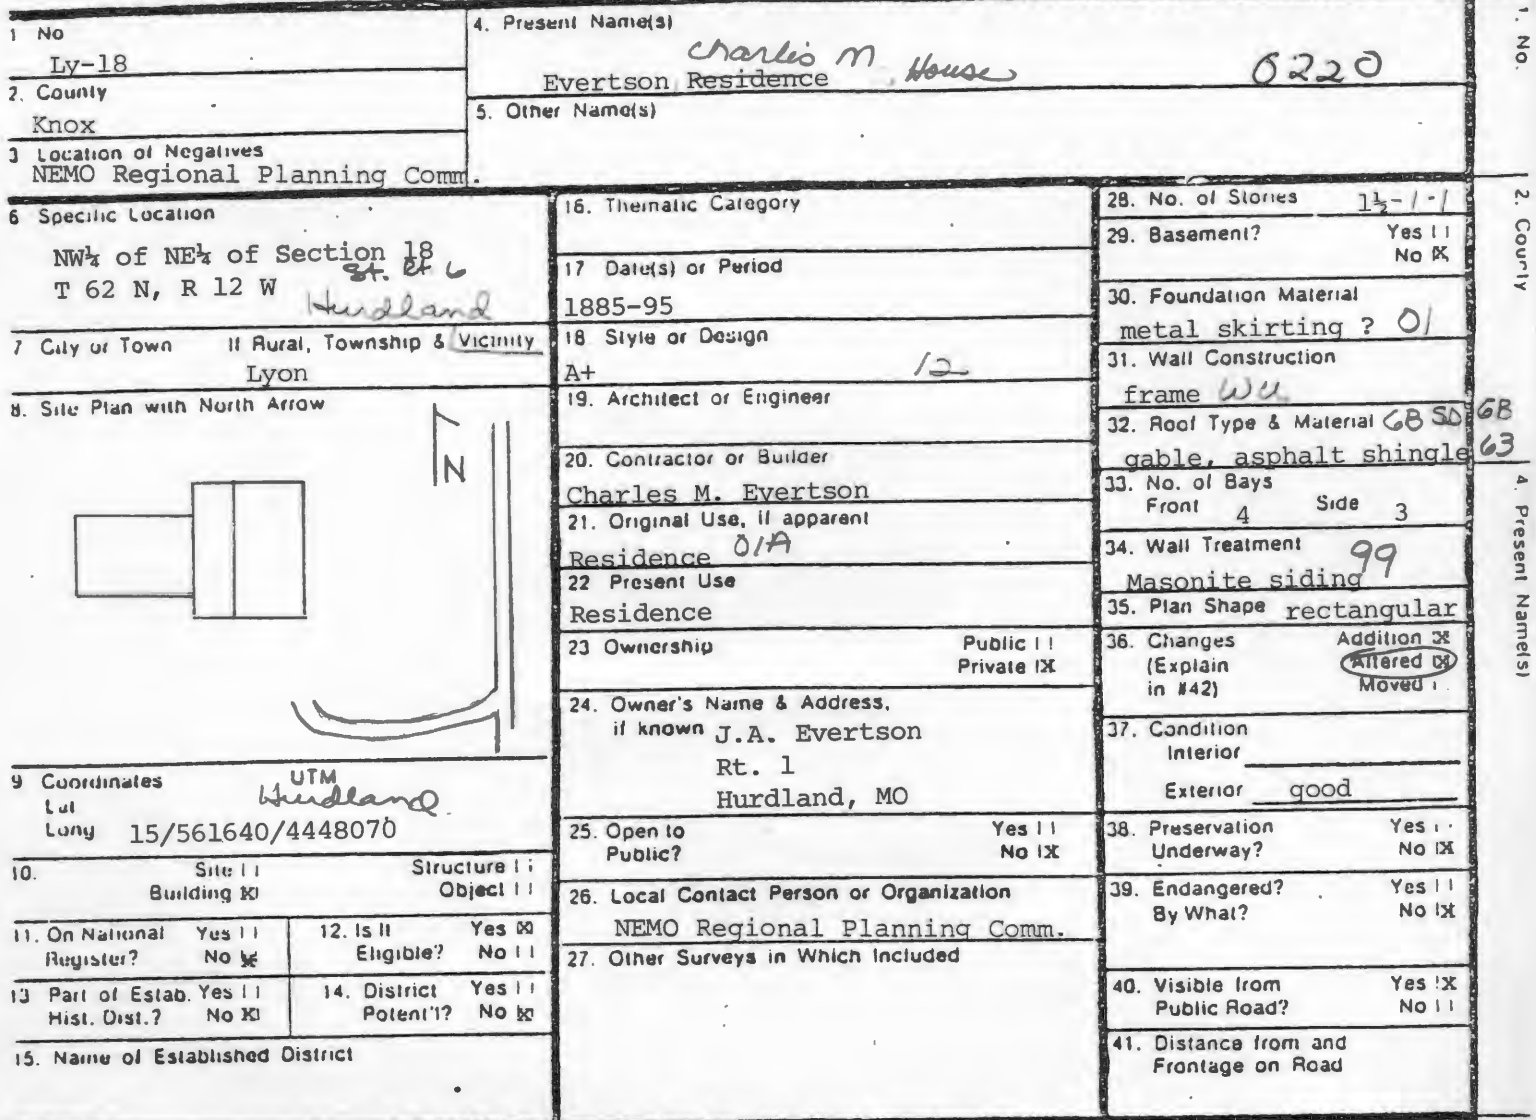 1 No
Ly-18
2. County
Knox
3 Location of Negatives
NEMO Regional Planning Comm.
4. Present Name(s)
Charles M House
Evertson Residence
6220
5. Other Name(s)
6 Specific Location
NW¼ of NE¼ of Section 18
St. Rt 6
T 62 N, R 12 W
Hurdland
7 City or Town If Rural, Township & Vicinity
Lyon
8. Site Plan with North Arrow
N
9 Coordinates UTM
Hurdland
Lat
Long 15/561640/4448070
10. Site Structure
Building X Object
11. On National Yes
Register? No X
12. Is It Yes X
Eligible? No
13 Part of Estab. Yes
Hist. Dist.? No X
14. District Yes
Potent'l? No X
15. Name of Established District
16. Thematic Category
17 Date(s) or Period
1885-95
18 Style or Design
A+ 12
19. Architect or Engineer
20. Contractor or Builder
Charles M. Evertson
21. Original Use, if apparent
Residence 01A
22 Present Use
Residence
23 Ownership Public
Private X
24. Owner's Name & Address,
if known J.A. Evertson
Rt. 1
Hurdland, MO
25. Open to Yes
Public? No X
26. Local Contact Person or Organization
NEMO Regional Planning Comm.
27. Other Surveys in Which Included
28. No. of Stories 1½-1-1
29. Basement? Yes
No X
30. Foundation Material
metal skirting ? 01
31. Wall Construction
frame WU
32. Roof Type & Material GB SD GB
gable, asphalt shingle 63
33. No. of Bays
Front 4 Side 3
34. Wall Treatment 99
Masonite siding
35. Plan Shape rectangular
36. Changes Addition X
(Explain Altered X
in #42) Moved
37. Condition
Interior
Exterior good
38. Preservation Yes
Underway? No X
39. Endangered? Yes
By What? No X
40. Visible from Yes X
Public Road? No
41. Distance from and
Frontage on Road
1. No.
2. County
4. Present Name(s)